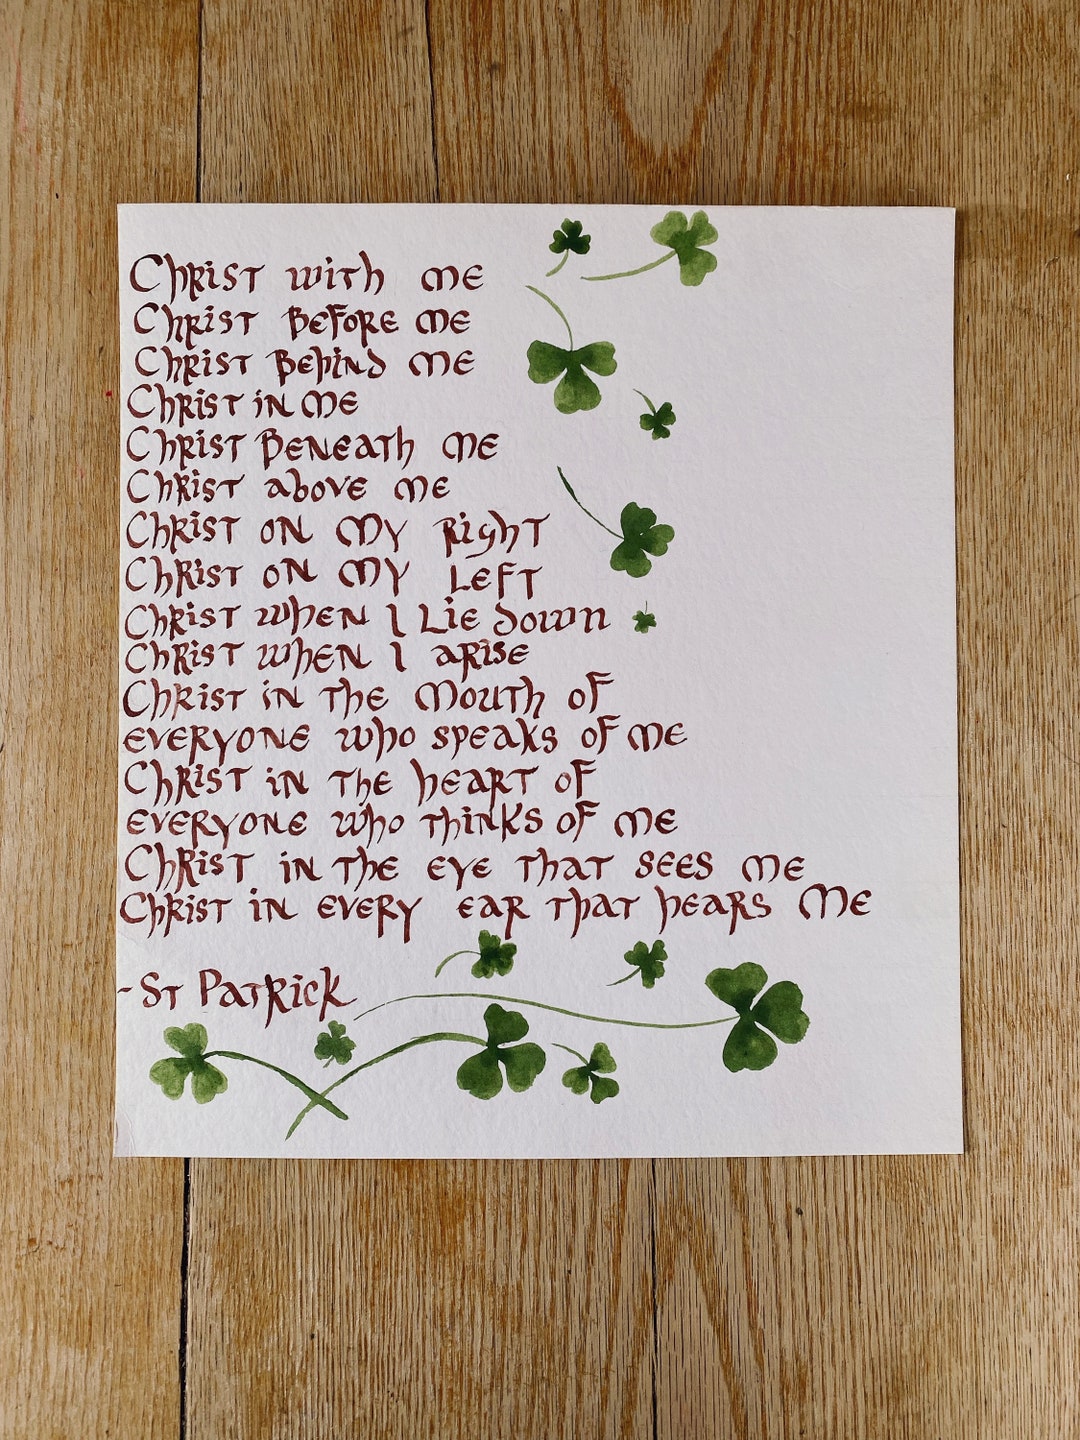 Christ with me
Christ before me
Christ behind me
Christ in me
Christ beneath me
Christ above me
Christ on my right
Christ on my left
Christ when I lie down
Christ when I arise
Christ in the mouth of
everyone who speaks of me
Christ in the heart of
everyone who thinks of me
Christ in the eye that sees me
Christ in every ear that hears me
- St Patrick